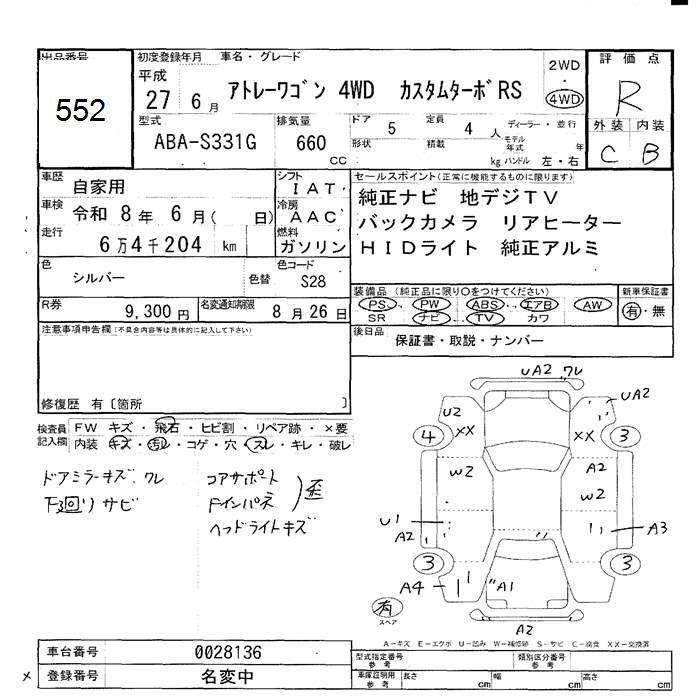 出品番号
552
初度登録年月
平成
27 6 月
車名・グレード
アトレーワゴン 4WD カスタムターボRS
2WD
・
4WD
評価点
R
外装 内装
C B
型式
ABA-S331G
排気量
660
CC
ドア
5
定員
4 人
形状
積載
kg
ディーラー・並行
モデル年式 年
ハンドル 左・右
車歴
自家用
車検
令和 8 年 6 月( 日)
走行
6 万 4 千 204 km
シフト
IAT
冷房
AAC
燃料
ガソリン
セールスポイント(正常に機能するものに限ります)
純正ナビ 地デジTV
バックカメラ リアヒーター
HIDライト 純正アルミ
色
シルバー
色替
色コード
S28
R券
9,300 円
名変通知期限
8 月 26 日
装備品 (純正品に限り○をつけてください)
PS PW ABS エアB AW
SR ナビ TV カワ
新車保証書
有・無
後日品
保証書・取説・ナンバー
注意事項申告欄(不具合内容等は具体的に記入して下さい)
修復歴 有〔箇所 〕
検査員記入欄
FW キズ・飛石・ヒビ割・リペア跡・×要
内装 キズ・汚レ・コゲ・穴・スレ・キレ・破レ
ドアミラーキズ、ワレ
下回リ サビ
コアサポート
Fインパネ
歪
ヘッドライトキズ
UA2 ワレ
U2
XX
XX
UA2
4
3
W2
A2
W2
U1
A2
A3
3
3
A4
A1
A2
有
スペア
A-キズ E-エクボ U-凹み W-補修跡 S-サビ C-腐食 XX-交換済
車台番号
0028136
登録番号
名変中
型式指定番号
参考
類別区分番号
参考
車庫証明用
参考
長さ cm 幅 cm 高さ cm